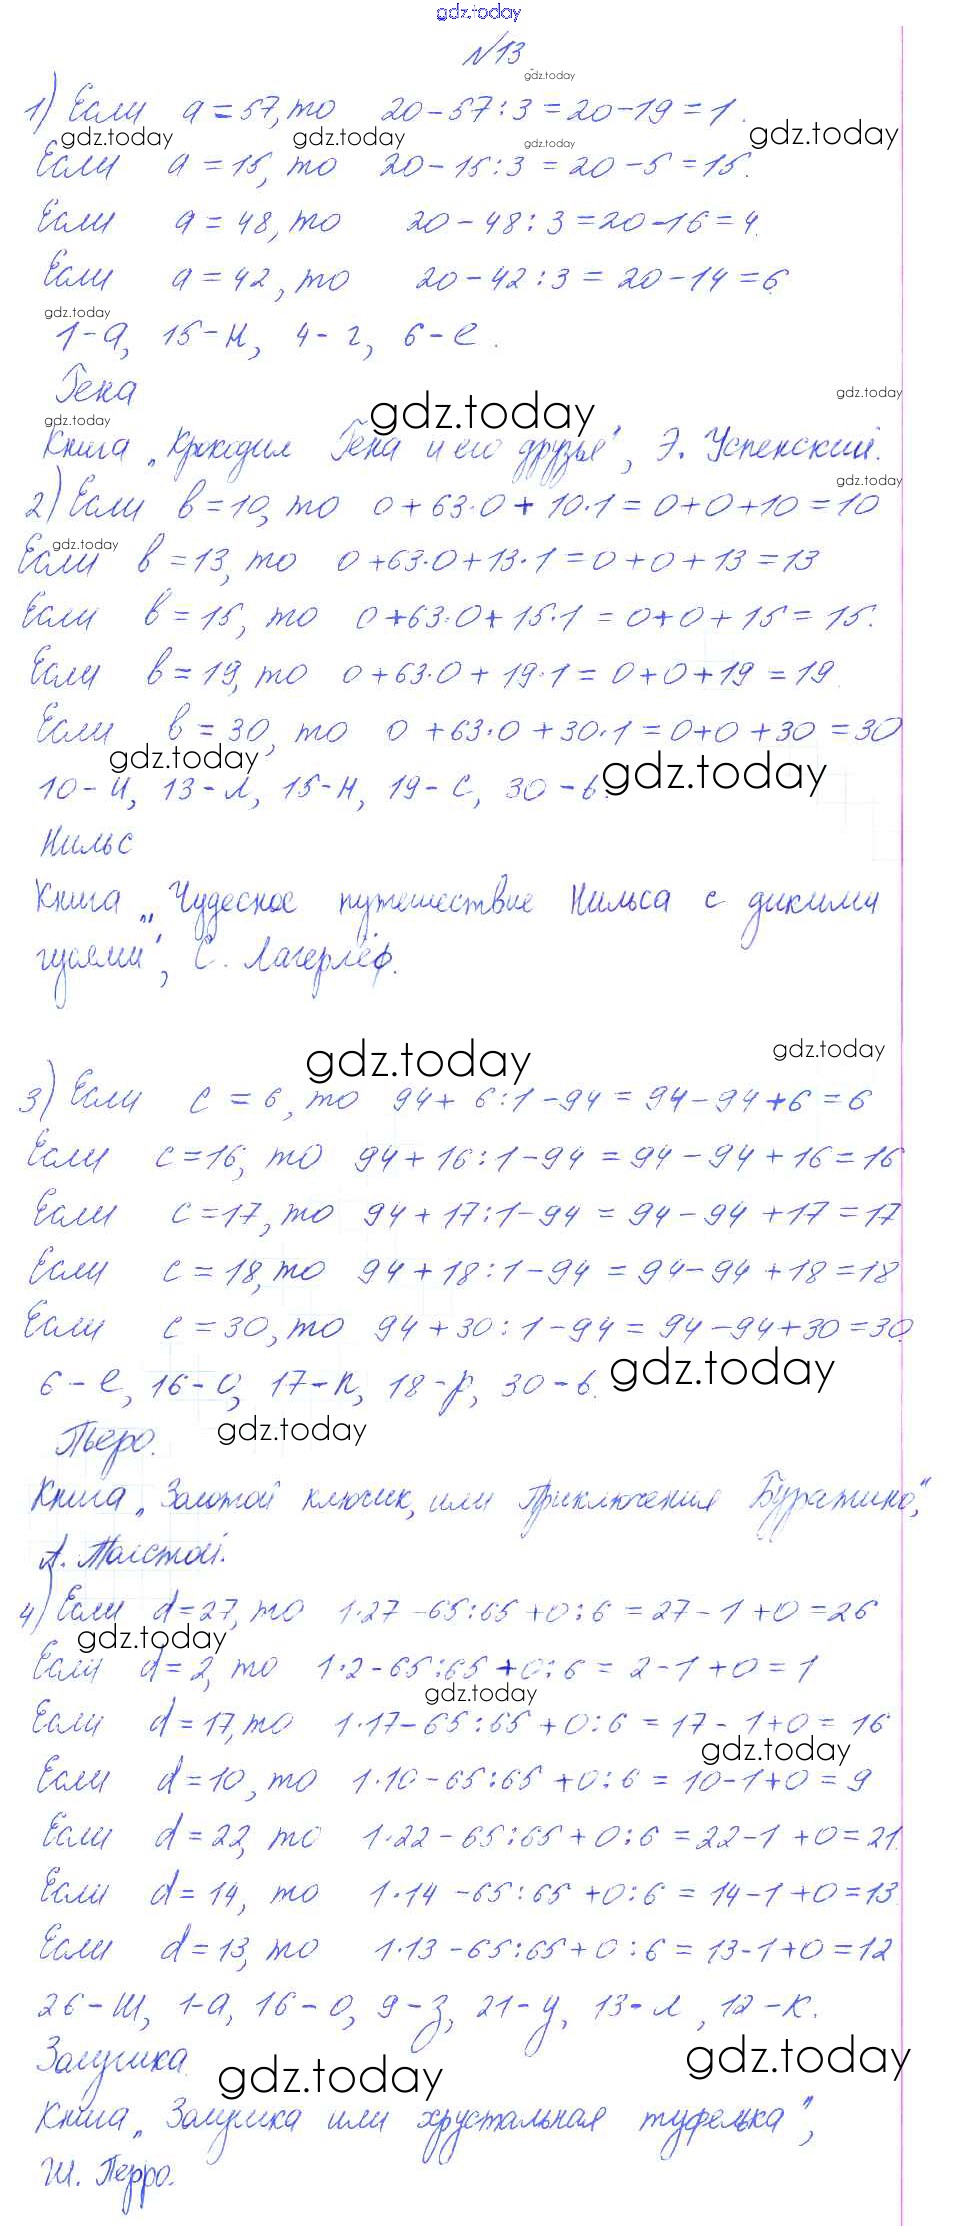 gdz.today
№13
gdz.today
1) Если a = 57, то 20-57:3=20-19=1.
gdz.today gdz.today gdz.today gdz.today
Если a = 15, то 20-15:3=20-5=15.
Если a = 48, то 20-48:3=20-16=4.
Если a = 42, то 20-42:3=20-14=6.
gdz.today
1-а, 15-н, 4-г, 6-е.
Гена
gdz.today gdz.today
gdz.today
Книга „Крокодил Гена и его друзья", Э. Успенский.
gdz.today
2) Если b=10, то 0+63·0+10·1=0+0+10=10
gdz.today
Если b=13, то 0+63·0+13·1=0+0+13=13
Если b=15, то 0+63·0+15·1=0+0+15=15.
Если b=19, то 0+63·0+19·1=0+0+19=19.
Если b=30, то 0+63·0+30·1=0+0+30=30
gdz.today gdz.today
10-и, 13-л, 15-н, 19-с, 30-ь.
Нильс
Книга „Чудесное путешествие Нильса с дикими
гусями", С. Лагерлёф.
gdz.today gdz.today
3) Если c = 6, то 94+6:1-94=94-94+6=6
Если c=16, то 94+16:1-94=94-94+16=16
Если c=17, то 94+17:1-94=94-94+17=17
Если c=18, то 94+18:1-94=94-94+18=18
Если c=30, то 94+30:1-94=94-94+30=30.
gdz.today
6-е, 16-о, 17-п, 18-р, 30-ь.
gdz.today
Пьеро.
Книга „Золотой ключик, или Приключения Буратино",
А. Толстой.
4) Если d=27, то 1·27-65:65+0:6=27-1+0=26
gdz.today
Если d=2, то 1·2-65:65+0:6=2-1+0=1
gdz.today
Если d=17, то 1·17-65:65+0:6=17-1+0=16
gdz.today
Если d=10, то 1·10-65:65+0:6=10-1+0=9
Если d=22, то 1·22-65:65+0:6=22-1+0=21.
Если d=14, то 1·14-65:65+0:6=14-1+0=13.
Если d=13, то 1·13-65:65+0:6=13-1+0=12
26-ш, 1-а, 16-о, 9-з, 21-у, 13-л, 12-к.
Золушка.
gdz.today gdz.today
Книга „Золушка или хрустальная туфелька",
Ш. Перро.